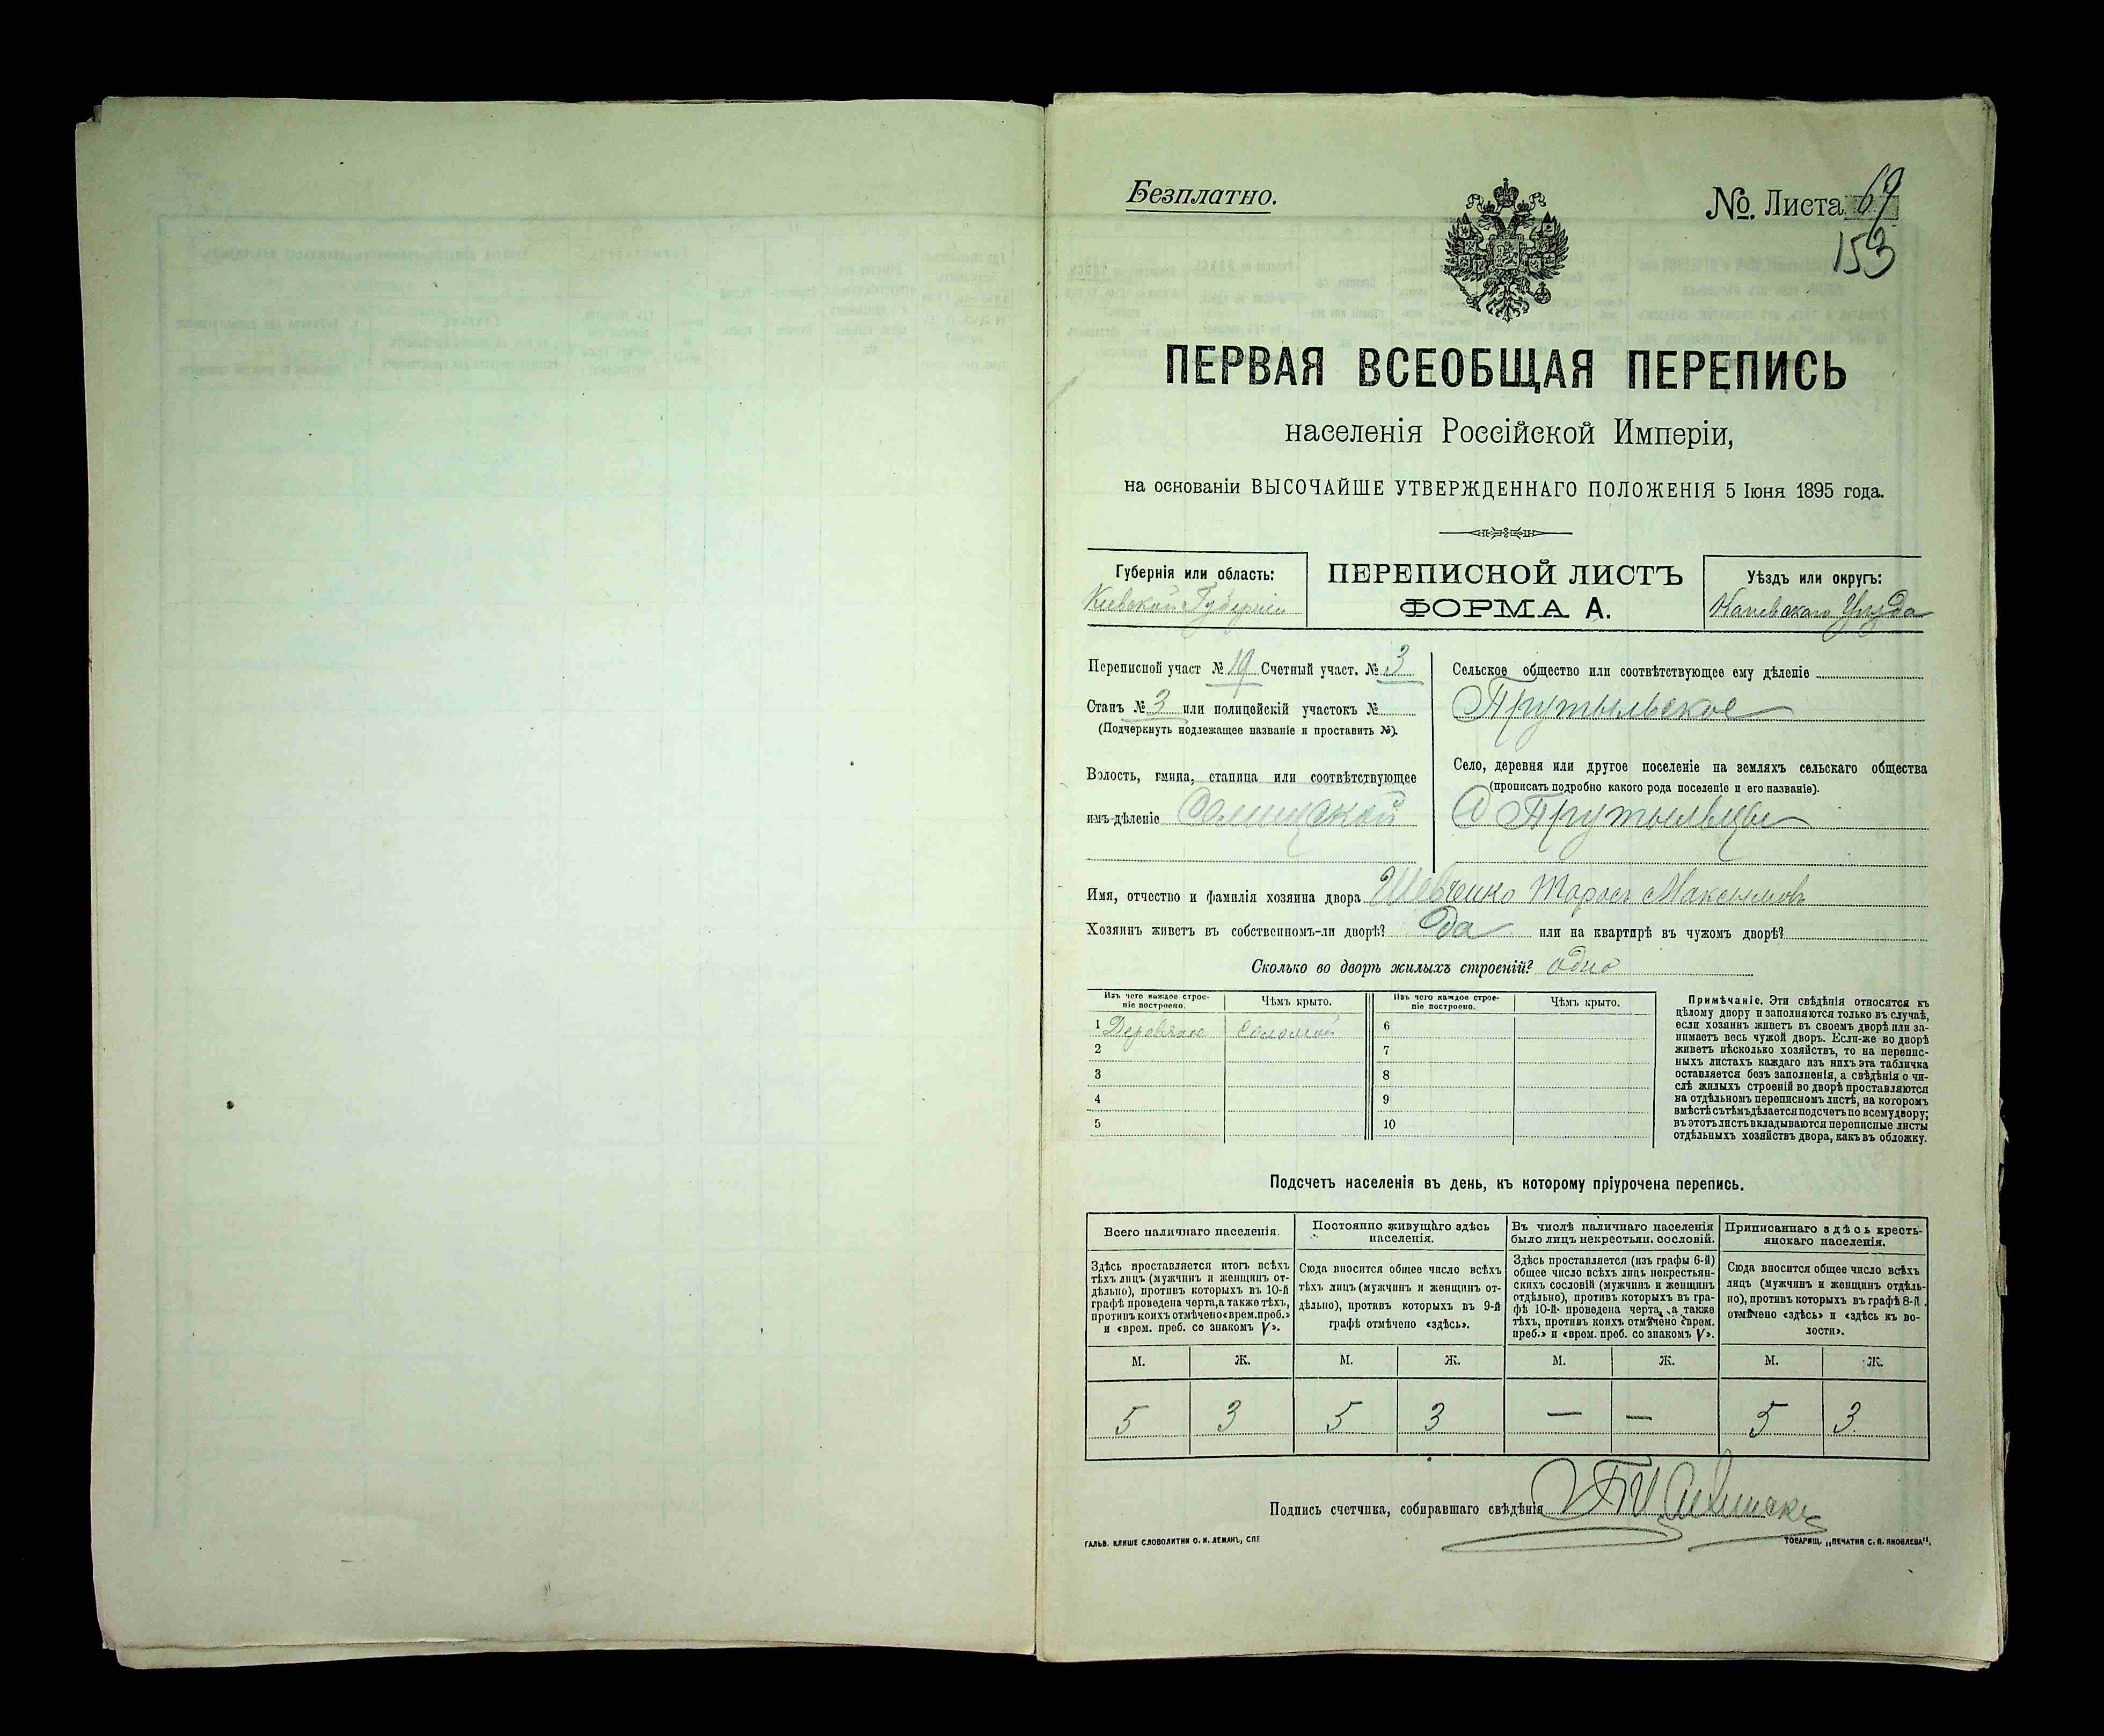 Безплатно.
№. Листа 69
153
ПЕРВАЯ ВСЕОБЩАЯ ПЕРЕПИСЬ
населенія Россійской Имперіи,
на основаніи ВЫСОЧАЙШЕ УТВЕРЖДЕННАГО ПОЛОЖЕНІЯ 5 Іюня 1895 года.
Губернія или область:
Кіевской Губерніи
ПЕРЕПИСНОЙ ЛИСТЪ
ФОРМА А.
Уѣздъ или округъ:
Каневскаго Уѣзда
Переписной участ № 19 Счетный участ. № 3
Станъ № 3 или полицейскій участокъ №
(Подчеркнуть подлежащее названіе и проставить №).
Волость, гмина, станица или соотвѣтствующее
имъ дѣленіе
Сельское общество или соотвѣтствующее ему дѣленіе
Прутыльское
Село, деревня или другое поселеніе на земляхъ сельскаго общества
(прописать подробно какого рода поселеніе и его названіе).
С Прутыльцы
Имя, отчество и фамилія хозяина двора Шевченко Тарасъ Максимовъ
Хозяинъ живетъ въ собственномъ-ли дворѣ? Да или на квартирѣ въ чужомъ дворѣ?
Сколько во дворѣ жилыхъ строеній? одно
Изъ чего каждое строе-
ніе построено.
Чѣмъ крыто.
1 Деревянн Соломой
2
3
4
5
Изъ чего каждое строе-
ніе построено.
Чѣмъ крыто.
6
7
8
9
10
Примѣчаніе. Эти свѣдѣнія относятся къ
цѣлому двору и заполняются только въ случаѣ,
если хозяинъ живетъ въ своемъ дворѣ или за-
нимаетъ весь чужой дворъ. Если-же во дворѣ
живетъ нѣсколько хозяйствъ, то на перепис-
ныхъ листахъ каждаго изъ нихъ эта табличка
оставляется безъ заполненія, а свѣдѣнія о чи-
слѣ жилыхъ строеній во дворѣ проставляются
на отдѣльномъ переписномъ листѣ, на которомъ
вмѣстѣ съ тѣмъ дѣлается подсчетъ по всему двору;
въ этотъ листъ вкладываются переписные листы
отдѣльныхъ хозяйствъ двора, какъ въ обложку.
Подсчетъ населенія въ день, къ которому пріурочена перепись.
Всего наличнаго населенія.
Здѣсь проставляется итогъ всѣхъ
тѣхъ лицъ (мужчинъ и женщинъ от-
дѣльно), противъ которыхъ въ 10-й
графѣ проведена черта, а также тѣхъ,
противъ коихъ отмѣчено «врем. преб.»
и «врем. преб. со знакомъ V».
Постоянно живущаго здѣсь
населенія.
Сюда вносится общее число всѣхъ
тѣхъ лицъ (мужчинъ и женщинъ от-
дѣльно), противъ которыхъ въ 9-й
графѣ отмѣчено «здѣсь».
Въ числѣ наличнаго населенія
было лицъ некрестьян. сословій.
Здѣсь проставляется (изъ графы 6-й)
общее число всѣхъ лицъ некрестьян-
скихъ сословій (мужчинъ и женщинъ
отдѣльно), противъ которыхъ въ гра-
фѣ 10-й проведена черта, а также
тѣхъ, противъ коихъ отмѣчено «врем.
преб.» и «врем. преб. со знакомъ V».
Приписаннаго здѣсь кресть-
янскаго населенія.
Сюда вносится общее число всѣхъ
лицъ (мужчинъ и женщинъ отдѣль-
но), противъ которыхъ въ графѣ 8-й
отмѣчено «здѣсь» и «здѣсь къ во-
лости».
М. Ж. М. Ж. М. Ж. М. Ж.
5 3 5 3 — — 5 3
Подпись счетчика, собиравшаго свѣдѣнія
ГАЛЬВ. КЛИШЕ СЛОВОЛИТНИ О. И. ЛЕМАНЪ, СПБ
ТОВАРИЩ. „ПЕЧАТНЯ С. П. ЯКОВЛЕВА".